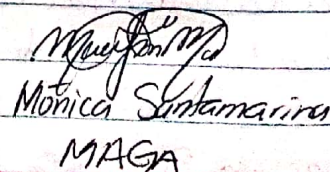 Mónica Santamarina
MAGA